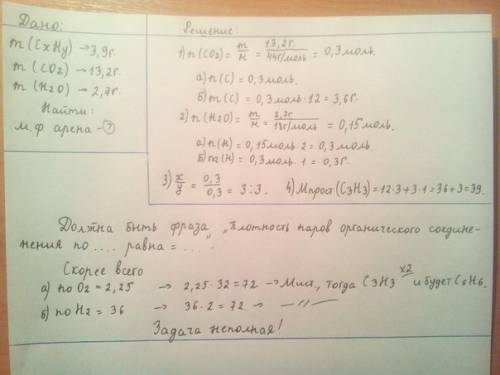 Дано:
m (CxHy) → 3,9г.
m (CO2) → 13,2г.
m (H2O) → 2,7г.
Найти:
м.ф. арена - ?
Решение:
1) n(CO2) = m/M = 13,2г/44г/моль = 0,3 моль.
а) n(C) = 0,3 моль.
б) m(C) = 0,3 моль · 12 = 3,6г.
2) n(H2O) = m/M = 2,7г/18г/моль = 0,15 моль.
а) n(H) = 0,15 моль · 2 = 0,3 моль.
б) m(H) = 0,3 моль · 1 = 0,3г.
3) x/y = 0,3/0,3 = 3:3.
4) Mпрост(C3H3) = 12·3+3·1 = 36+3 = 39.
Должна быть фраза „Плотность паров органического соедине-
нения по .... равна = .... "
Скорее всего
а) по O2 = 2,25 → 2,25 · 32 = 72 → Mист, тогда C3H3 x2 и будет C6H6.
б) по H2 = 36 → 36 · 2 = 72 → —//—
Задача неполная!